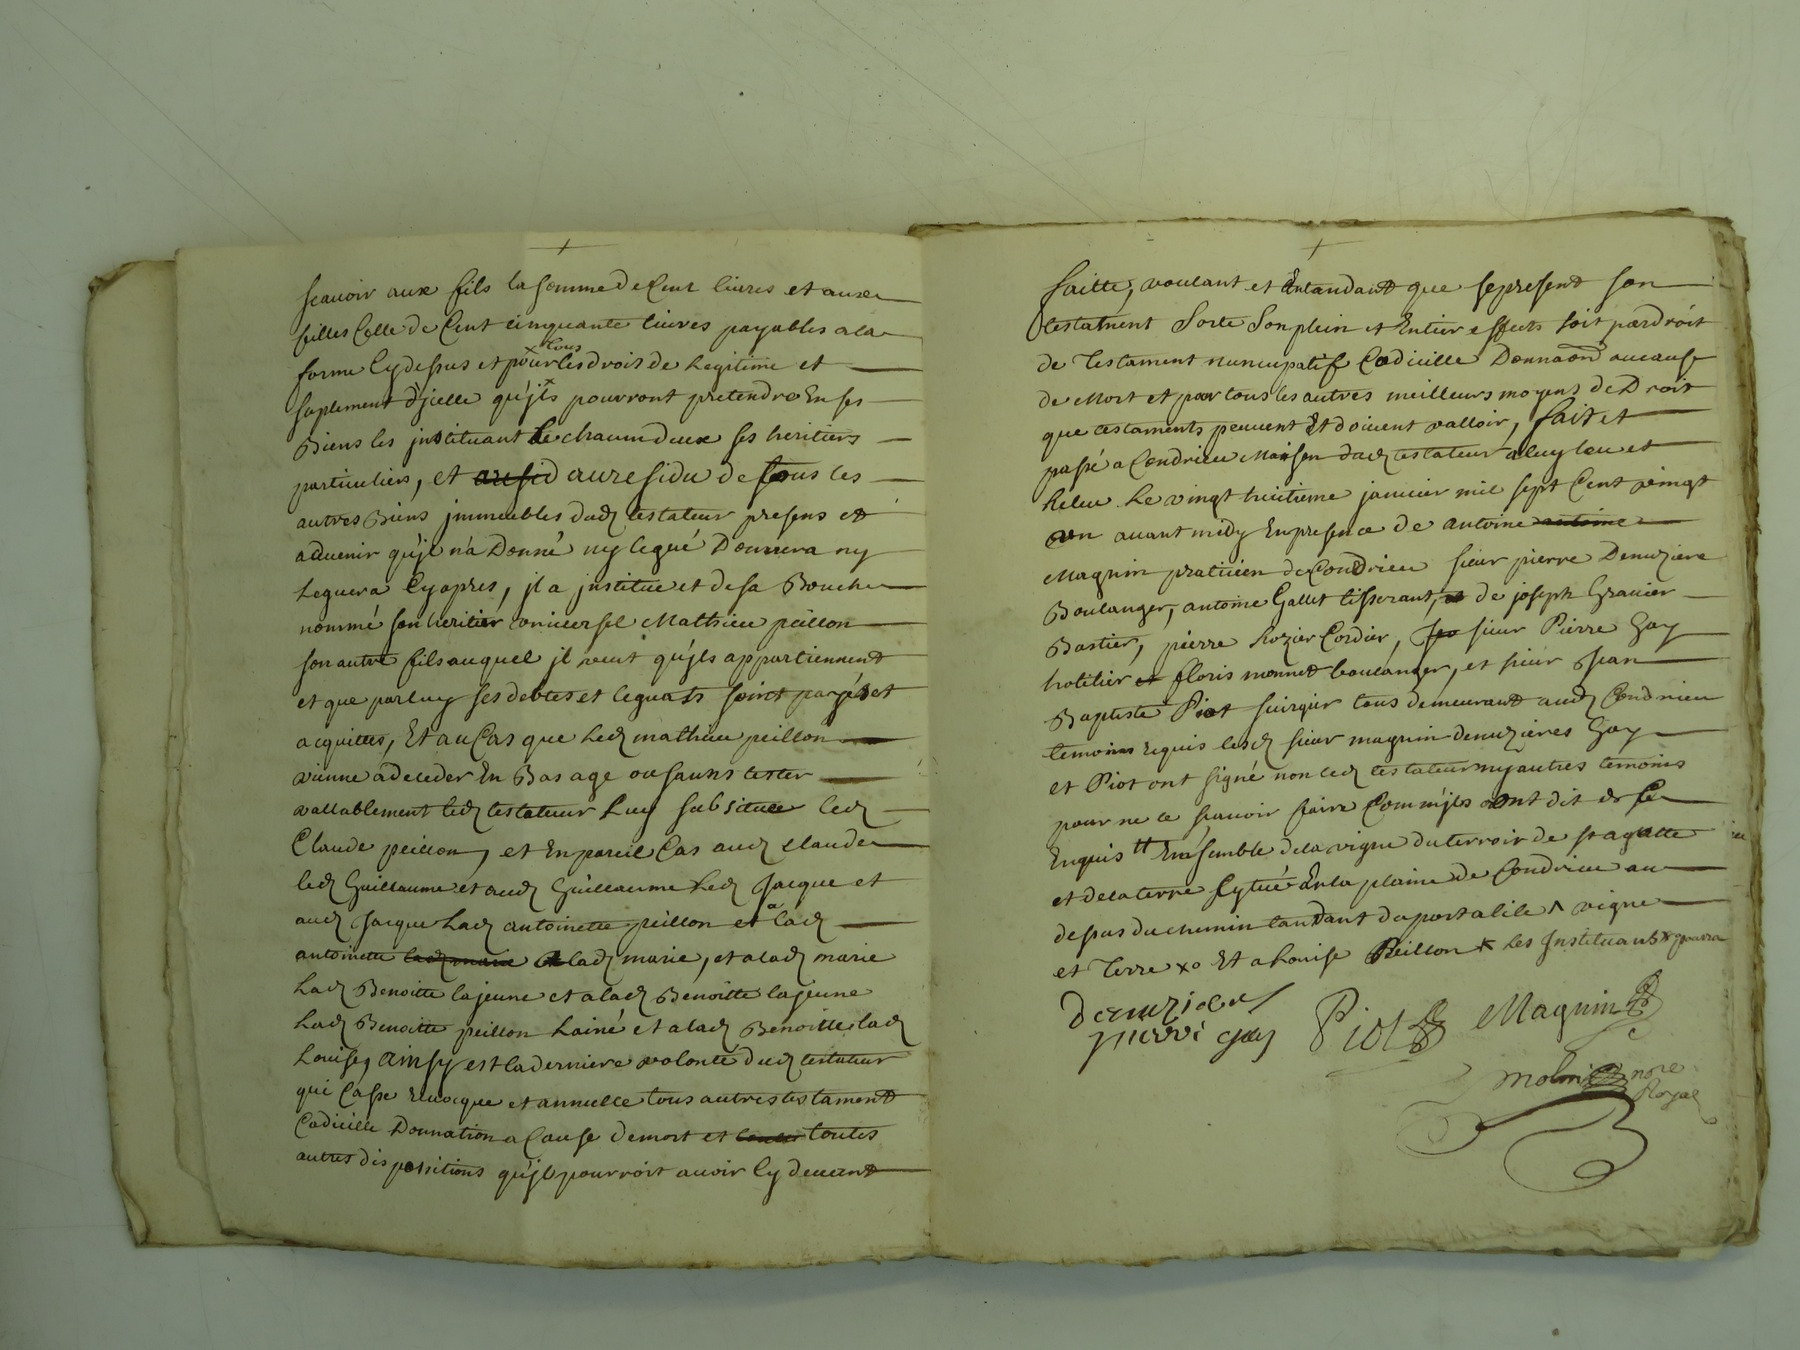 scavoir aux fils la somme de Cent livres et aux
filles Celle de Cent cinquante livres payables a la
forme Cy dessus et pour tous les droits de Legitime et
suplement d'jcelle qu'jls pourront pretendre En ses
Biens les jnstituant chacun deux ses heritiers
particuliers, et au residu de tous les
autres Biens jmmeubles dud testateur presens et
advenir qu'jl n'a Donné ny legué Donnera ny
Leguera Cy apres, jl a jnstitue et de sa Bouche
nommé son heritier universel Mathieu peillon
son autre fils auquel jl veut qu'jls appartiennent
et que par luy ses debtes et leguats soint payés et
acquittes, Et au Cas que Led mathieu peillon
vienne a deceder En Bas age ou sauns tester
vallablement led testateur Luy substitue led
Claude peillon, et En pareil Cas aud claude
led Guillaume et aud Guillaume Led Jacque et
aud Jacque Lad antoinette peillon et a lad
antoinette lad marie, et a lad marie
Lad Benoitte la jeune et a lad Benoitte la jeune
Lad Benoitte peillon Lainé et a lad Benoitte lad
Louise, ainsy est la derniere volonté dud testateur
qui Casse Revocque et annulle tous autres testament
Codicille Donnation a Cause de mort et toutes
autres dispositions qu'jl pourroit avoir Cy devant
faitte, voulant et Entandant que se present son
testatment Sorte Son plein et Entier effects soit par droit
de Testament nuncupatif Codicille Donnaon au cause
de Mort et par tous les autres meilleurs moyens de Droit
que testaments peuvent Et doivent valloir, fait et
passé a Condrieu Maison dud testateur a luy leu et
Releu Le vingt huitieme janvier mil sept Cent vingt
un avant midy En presence de antoine
Magnin praticien de Condrieu sieur pierre Demuziere
Boulanger, antoine Gallet tisserant, de joseph Gravier
Bastier, pierre Rozier Cordier, sieur Pierre Gay
hotelier floris monnet boulanger, et sieur Jean
Baptiste Piot tous demeurant aud Condrieu
temoins requis lesd sieur magnin demuzieres Gay
et Piot ont signé non led testateur ny autres temoins
pour ne le scavoir faire Comm'jls ont dit de Ce
Enquis Ensemble de la vigne du terroir de st agatte
et de la terre sytué En la plaine de Condrieu au
dessus du chemin tandant du port a lile ^ vigne
et Terre Et a Louise Peillon les Jnstituant pourra
Demuzieres Piot Magnin
pierre gay
nore
Royal